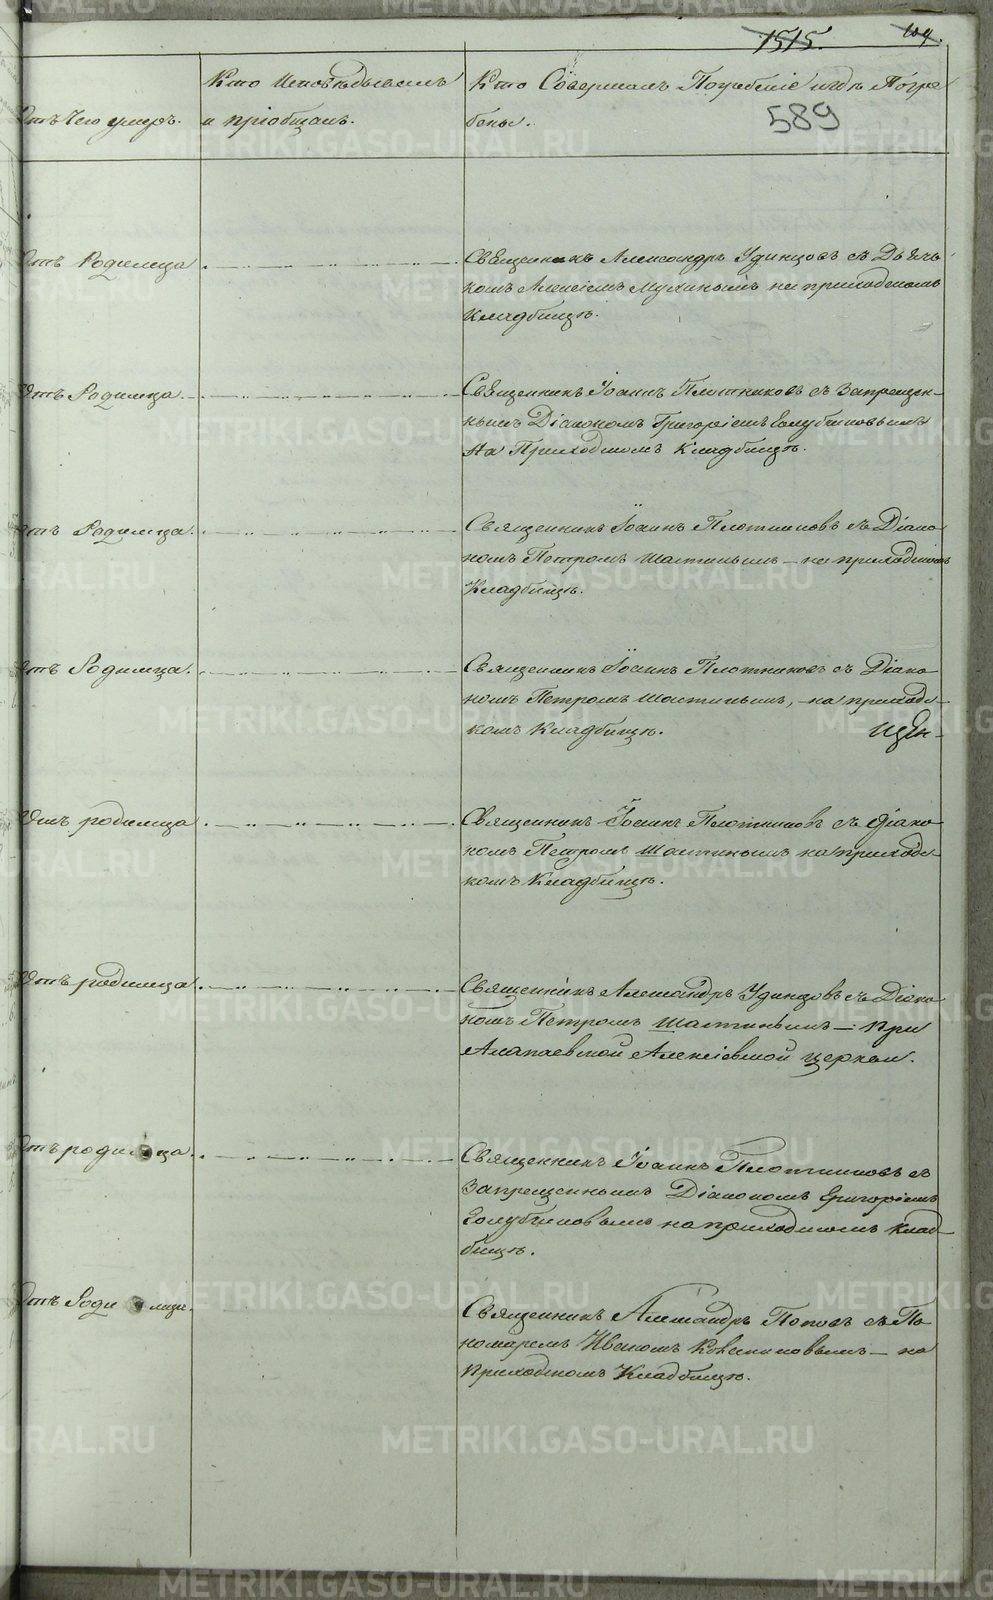 1515.
589
Отъ Чего умеръ.
Кто Исповѣдывалъ
и пріобщалъ.
Кто Совершалъ Погребеніе и гдѣ Погре
бены.
Отъ Родимца
Священникъ Александръ Удинцовъ съ Дьяч-
комъ Алексѣемъ Мухинымъ на приходскомъ
Кладбищѣ.
Отъ Родимца
Священникъ Іоаннъ Плотниковъ съ Запрещен-
нымъ Діакономъ Григоріемъ Голубчиковымъ
На Приходскомъ Кладбищѣ.
Отъ Родимца
Священникъ Іоаннъ Плотниковъ съ Діако
номъ Петромъ Шастинымъ – на приходскомъ
Кладбищѣ.
Отъ Родимца
Священникъ Іоаннъ Плотниковъ съ Діако
номъ Петромъ Шастинымъ, – на приходс
комъ Кладбищѣ.
Отъ родимца
Священникъ Іоаннъ Плотниковъ съ Діако
номъ Петромъ Шастинымъ на приходс
комъ Кладбищѣ.
Отъ родимца
Священникъ Александръ Удинцовъ съ Діако
номъ Петромъ Шастинымъ – при
Алапаевской Алексіевской церкви.
Отъ родимца
Священникъ Іоаннъ Плотниковъ съ
Запрещеннымъ Діакономъ Григоріемъ
Голубчиковымъ на приходскомъ клад
бищѣ.
Отъ Роди мца
Священникъ Александръ Поповъ съ По
номаремъ Иваномъ на
Приходскомъ Кладбищѣ.
METRIKI.GASO-URAL.RU